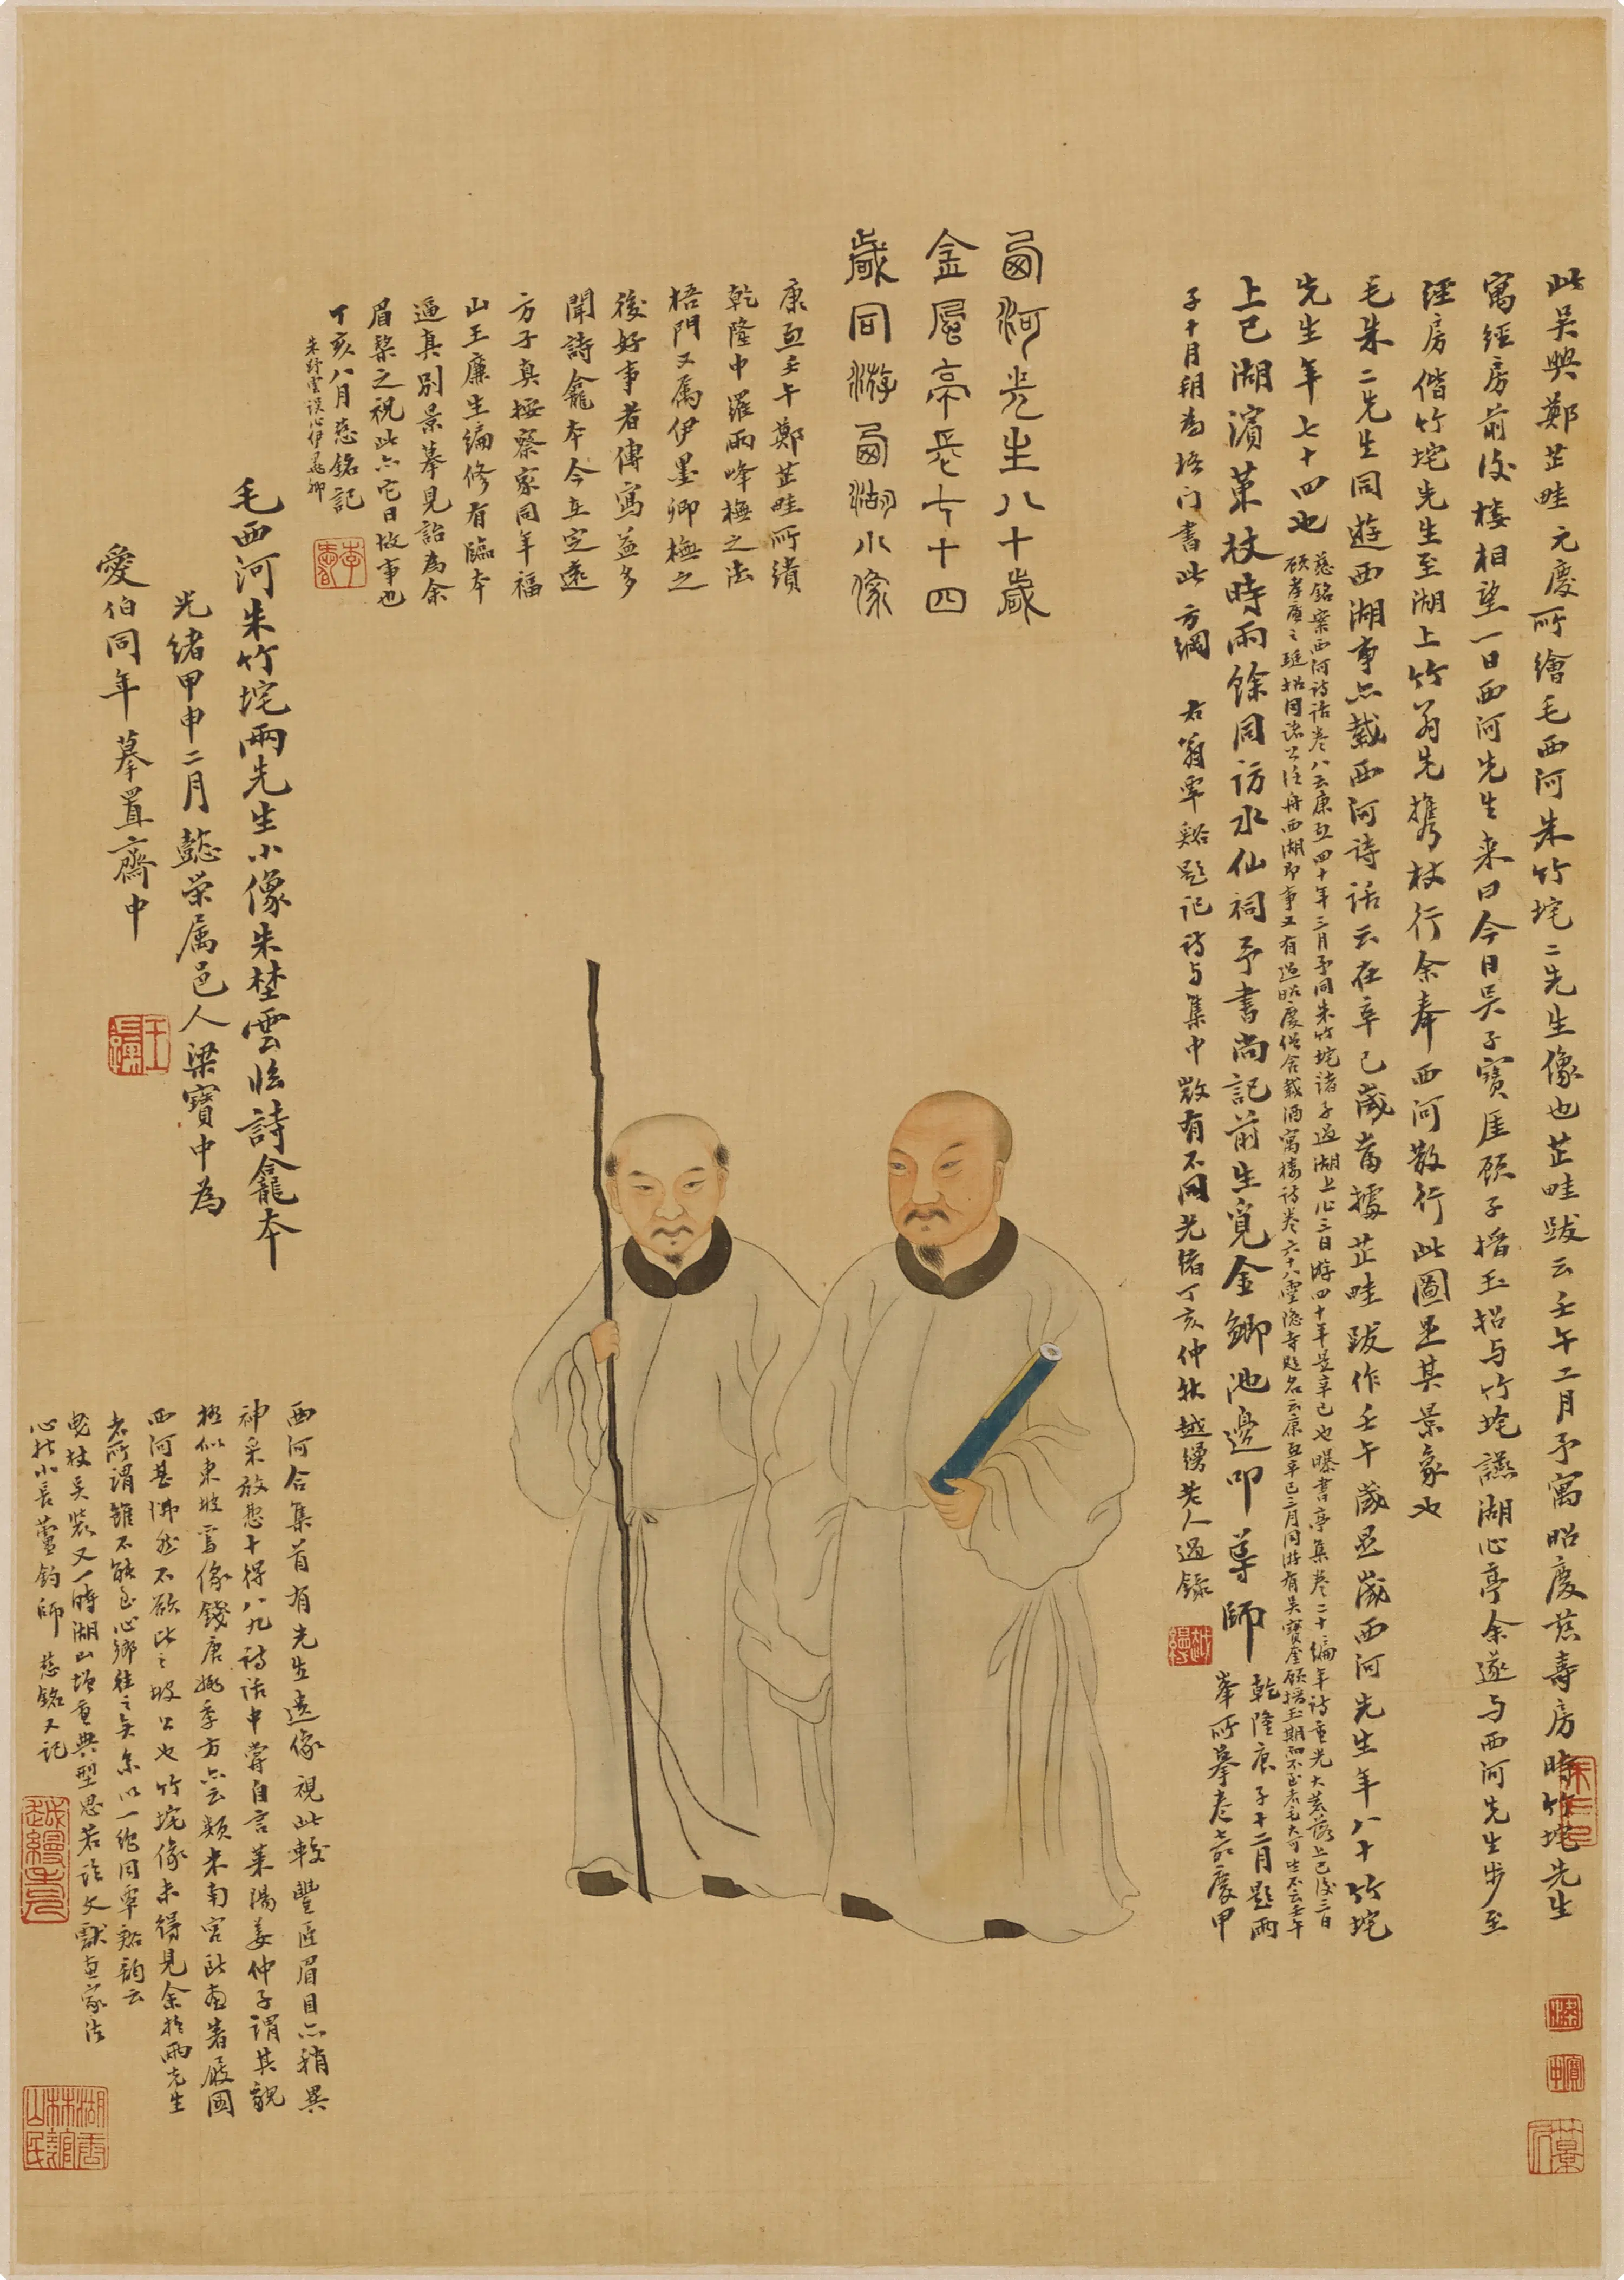 此吳興鄭芷畦元慶所繪毛西河朱竹垞二先生像也芷畦跋云壬午二月予寓昭慶慈壽房時竹垞先生
寓經房前後樓相望一日西河先生來曰今日吳子寶崖顧子搢玉招与竹垞讌湖心亭余遂与西河先生步至
經房偕竹垞先生至湖上竹翁先攜杖行余奉西河散行此圖是其景象也
毛朱二先生同遊西湖事亦載西河詩話云在辛巳歲當據芷畦跋作壬午歲是歲西河先生年八十竹垞
先生年七十四也
慈銘案西河詩話卷八云康熙四十年三月予同朱竹垞諸子過湖上作三日游四十年是辛巳也曝書亭集卷二十編年詩重光大荒落上巳後三日
顧孝廉之珽招同諸公泛舟西湖即事又有過昭慶僧舍載酒寓樓詩卷六十八靈隱寺題名云康熙辛巳三月同游有吳寶奎顧搢玉期而不至者毛大可也不云壬午
上巳湖濱策杖時雨餘同訪水仙祠予書尚記前生覓金鯽池邊叩導師
乾隆庚子十二月題兩
峯所摹卷嘉慶甲
子十月朔為梧门書此方綱 右翁覃谿題记詩与集中數有不同光緒丁亥仲秋越縵老人過錄
西河先生八十歲
金風亭長七十四
歲同游西湖小像
康熙壬午鄭芷畦所繢
乾隆中羅兩峰橅之法
梧門又属伊墨卿橅之
後好事者傳寫益多
聞詩龕本今在定遠
方子真按察家同年福
山王廉生編修有臨本
逼真別景摹見詒為余
眉棃之祝此亦它日故事也
丁亥八月慈銘記
朱野雲误作伊墨卿
毛西河朱竹垞兩先生小像朱埜雲臨詩龕本
光緒甲申二月懿榮属邑人梁寶中為
愛伯同年摹置齋中
西河合集首有先生遺像視此較豐匠眉目亦稍異
神采放忽十得八九詩话中嘗自言萊陽姜仲子謂其貌
極似東坡寫像錢唐姚季方亦云類米南宮所畫著屐圖
西河甚怫然不欲比之坡公也竹垞像未得見余於兩先生
者所謂雖不能至心鄉往之矣余以一绝同覃谿韵云
曳杖吴裝又一時湖山增重典型思若论文獻画家法
心折小長蘆釣師 慈銘又記